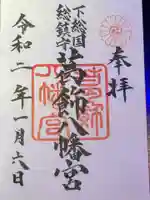 奉拝
下総国
総鎮守
葛飾八幡宮
令和二年一月六日
葛飾
八幡宮